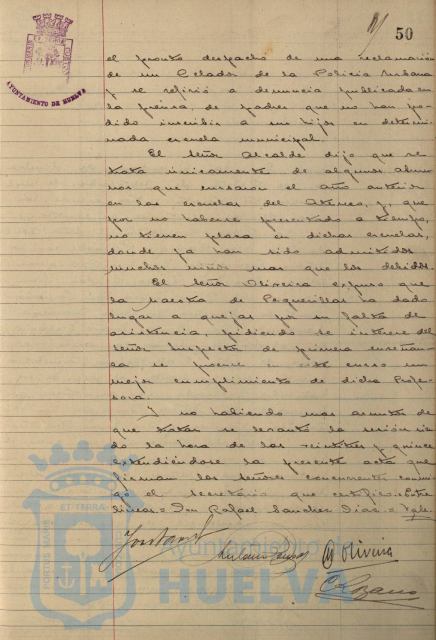 50
AYUNTAMIENTO DE HUELVA
el pronto despacho de una reclamación
de un Celador de la Policía Urbana
y se refirió a denuncia publicada en
la prensa, de padres que no han po-
dido inscribir a sus hijos en determi-
nada escuela municipal.
El Señor Alcalde dijo que se
trata únicamente de algunos alum-
nos que cursaron el año anterior
en las escuelas del Ateneo, y que
por no haberse presentado a tiempo,
no tienen plaza en dichas escuelas,
donde ya han sido admitidos
muchos niños mas que los debidos.
El Señor Oliveira expuso que
la maestra de Peguerillas ha dado
lugar a quejas por su falta de
asistencia, pidiendo se interese del
Señor Inspector de primera enseñan-
za se procure en este curso un
mejor cumplimiento de dicha Profe-
sora.
Y no habiendo mas asuntos de
que tratar se levantó la sesión sien-
do la hora de las veintitres y quince
extendiéndose la presente acta que
firman los señores concurrentes conmi-
go el secretario que certifico = Entre
lineas = Don Rafael Sanchez Diaz = Vale.
Oliveira
Lozano
PORTUS MARIS ET TERRÆ
Ayuntamiento de
HUELVA